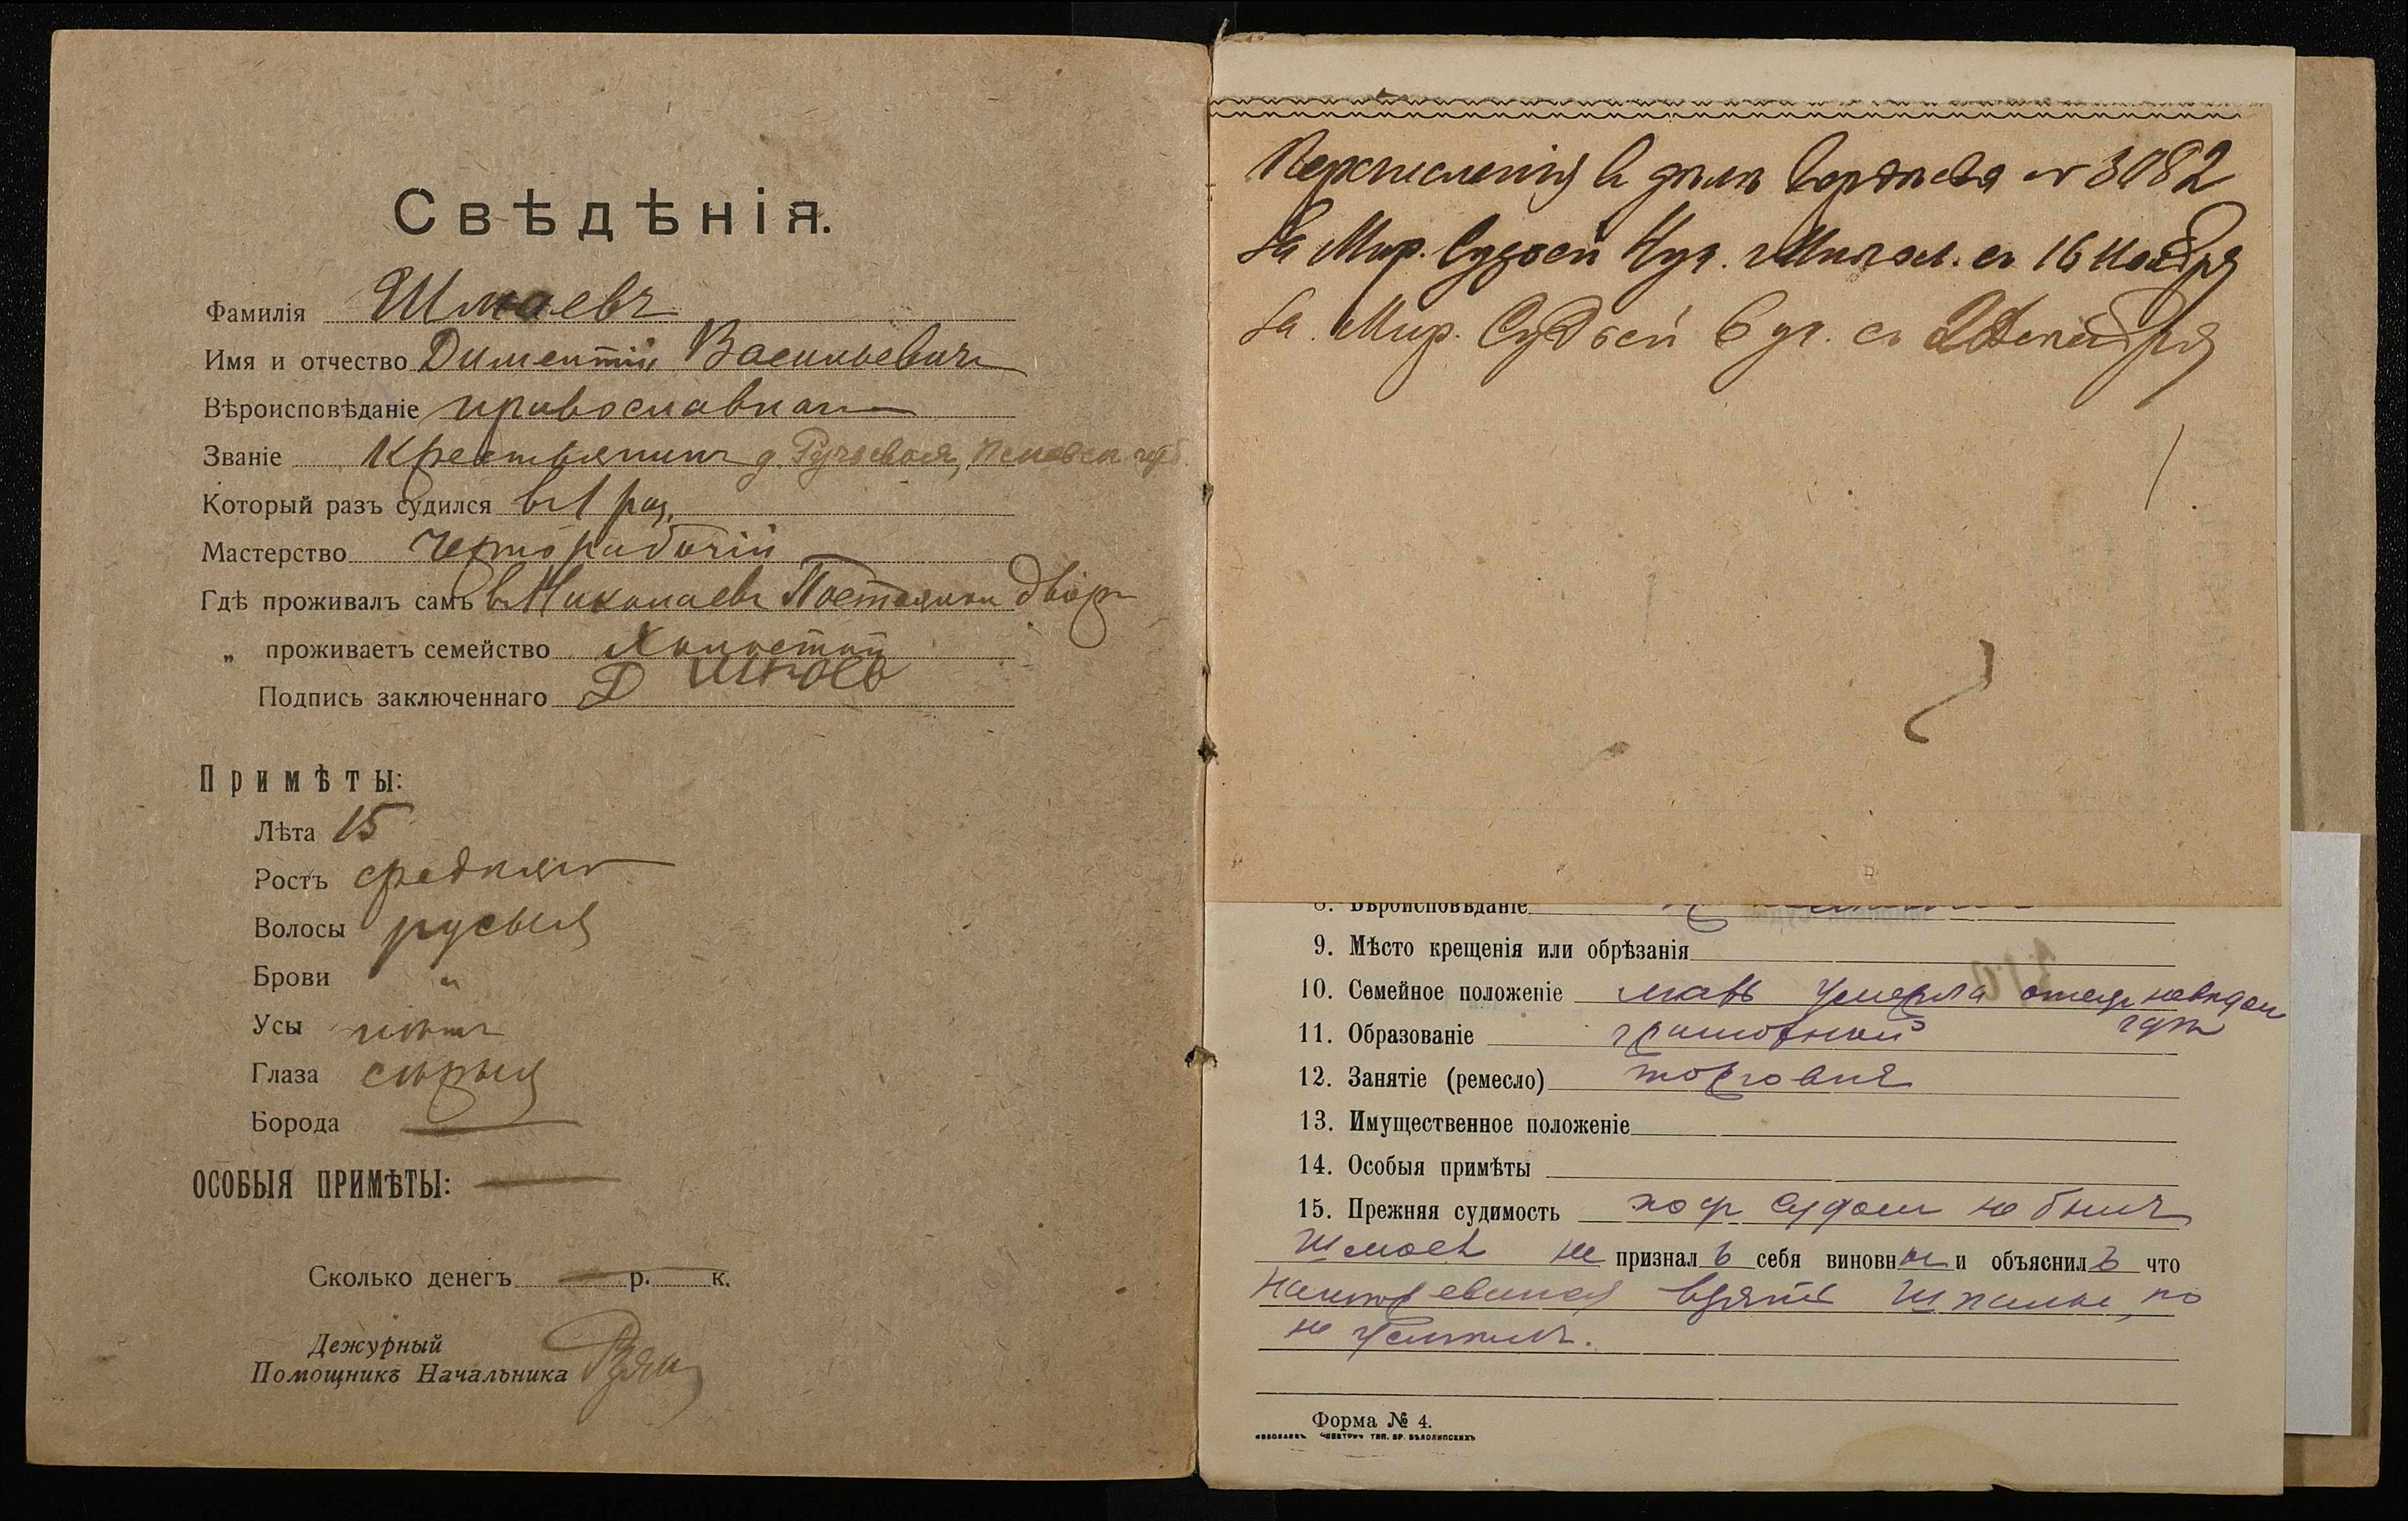 Свѣдѣнія.
Фамилія Шмаевъ
Имя и отчество Диментій Васильевичъ
Вѣроисповѣданіе православнаго
Званіе Крестьянинъ д. Ручьевая, Псковск губ.
Который разъ судился въ 1 раз.
Мастерство Чернорабочій
Гдѣ проживалъ самъ въ Николаевѣ Постоялый двор
„ проживаетъ семейство Холостой
Подпись заключеннаго Д Шмоев
Примѣты:
Лѣта 15
Ростъ средняго
Волосы русыя
Брови "
Усы нѣтъ
Глаза сѣрыя
Борода
ОСОБЫЯ ПРИМѢТЫ:
Сколько денегъ р. к.
Дежурный
Помощникъ Начальника
Перечисленъ в дѣлѣ № 3082
За Мир. Судьей 4 уч. г Никол. съ 16 Ноября
За. Мир. Судьей 6 уч. съ 2 Декабря
8. Вѣроисповѣданіе
9. Мѣсто крещенія или обрѣзанія
10. Семейное положеніе мать умерла отецъ невѣдом
гдѣ
11. Образованіе грамотный
12. Занятіе (ремесло) торговля
13. Имущественное положеніе
14. Особыя примѣты
15. Прежняя судимость под судом не былъ
Шмоев не призналъ себя виновным и объяснилъ что
намѣревался взять шпалы, но
не успѣлъ.
Форма № 4.